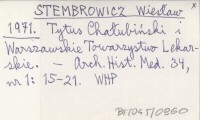 STEMBROWICZ Wiesław
1971. Tytus Chałubiński i
Warszawskie Towarzystwo Lekar-
skie. — Arch. Hist. Med. 34,
nr 1: 15-21. WHP